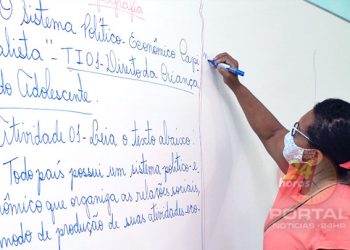 Geografia
O Sistema Político-Econômico Capi
alista"-TI01-Direito da Criança
do Adolescente.
Atividade 01-Leia o texto abaixo.
Todo país possui um sistema político-e
nômico que organiza as relações sociais,
modo de produção de suas atividades eco-
24 horas
PORTAL
NOTÍCIAS 24HR